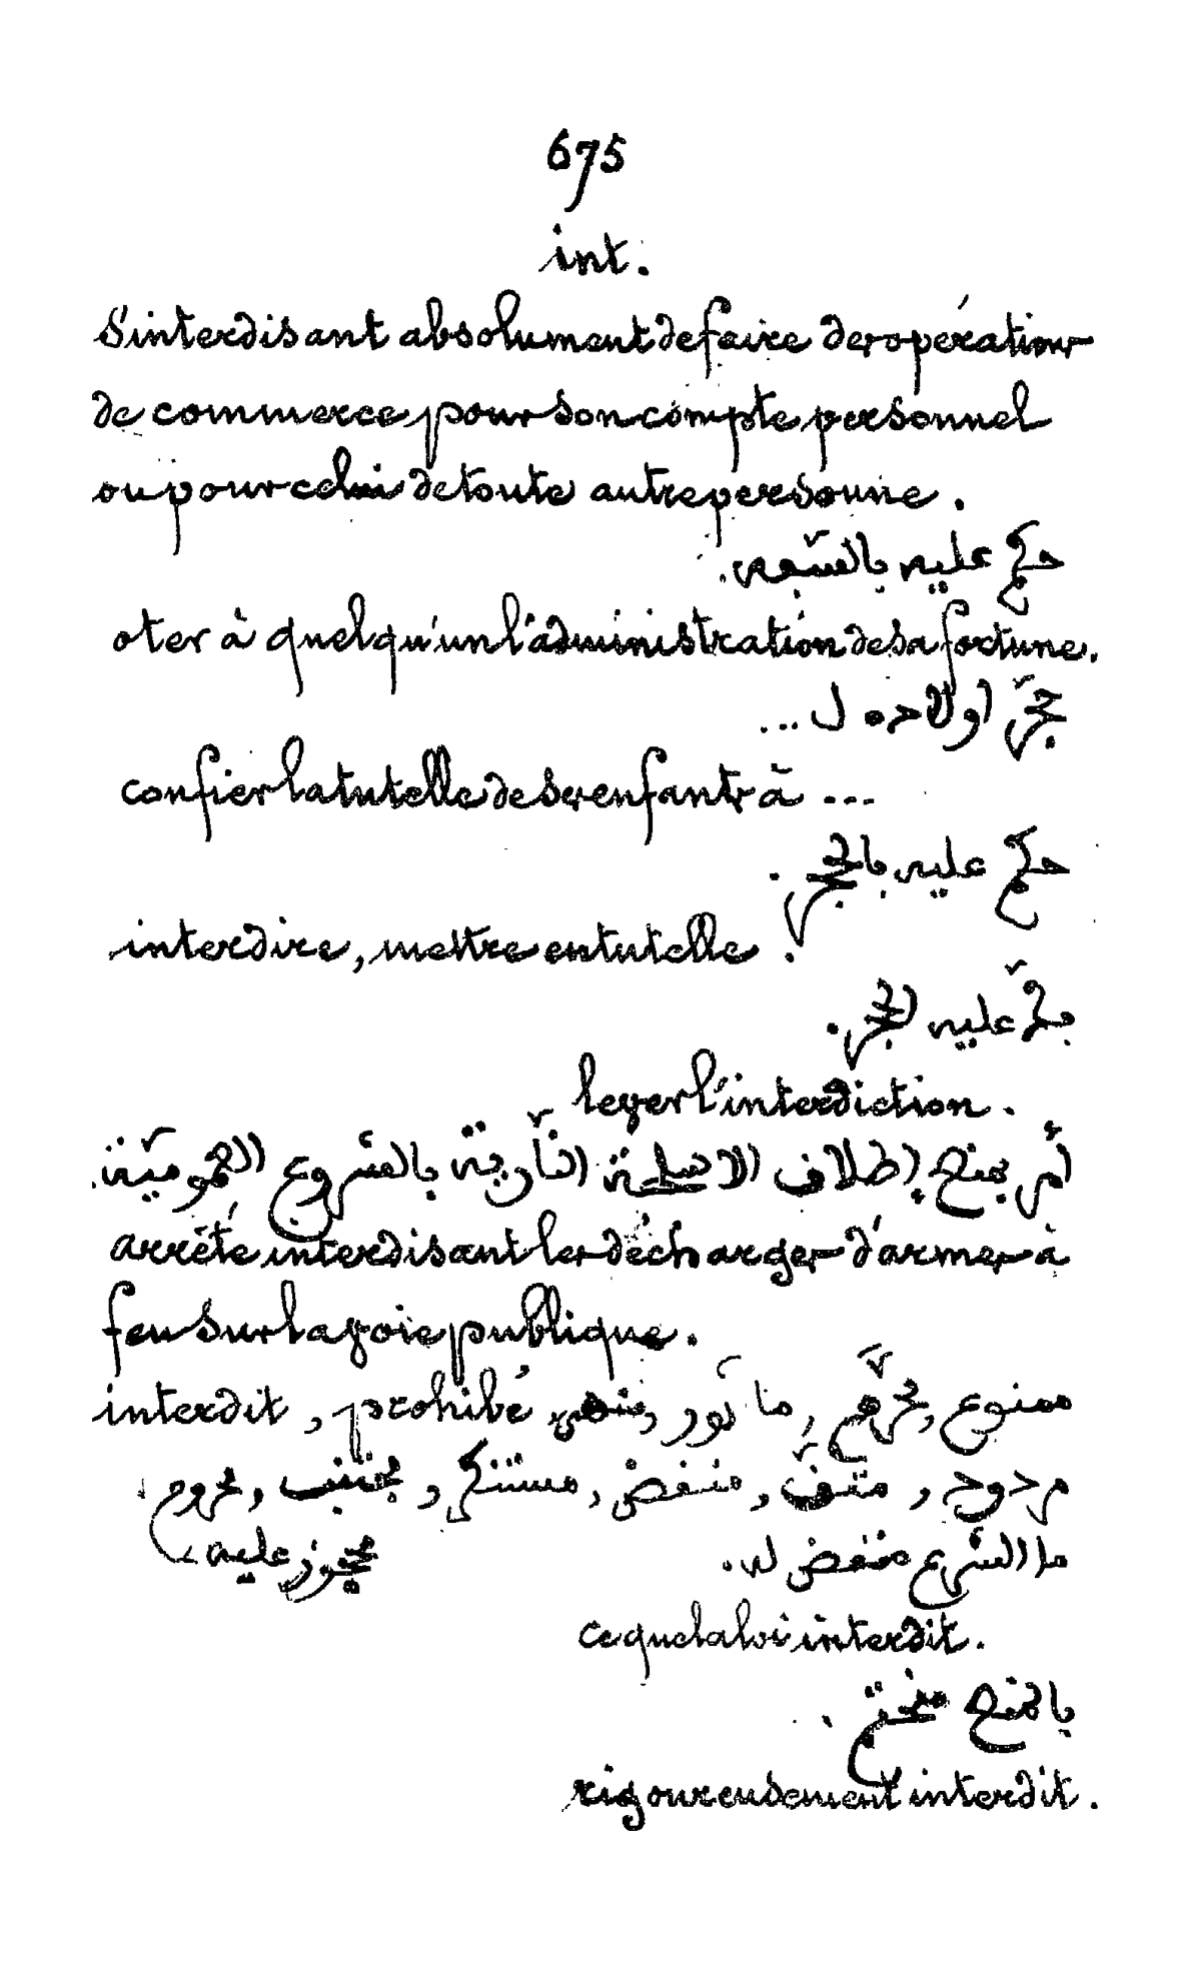 675
int.
S'interdisant absolument de faire des opérations
de commerce pour son compte personnel
ou pour celui de toute autre personne.
حكم عليه
oter à quelqu'un l'administration de sa fortune.
حجّر اولاده ل ...
confier la tutelle de ses enfants à ...
حكم عليه بالحجر.
interdire, mettre en tutelle.
عليه الحجر.
lever l'interdiction.
أمر بمنع إطلاق الاسلحة النّارية بالشروع العموميّة.
arrêté interdisant les décharges d'armes à
feu sur la voie publique.
interdit, prohibé ممنوع, محرّم,
منغض,
ما الشرع منغض له. محجوز عليه
ce que la loi interdit.
بالمنع
rigoureusement interdit.